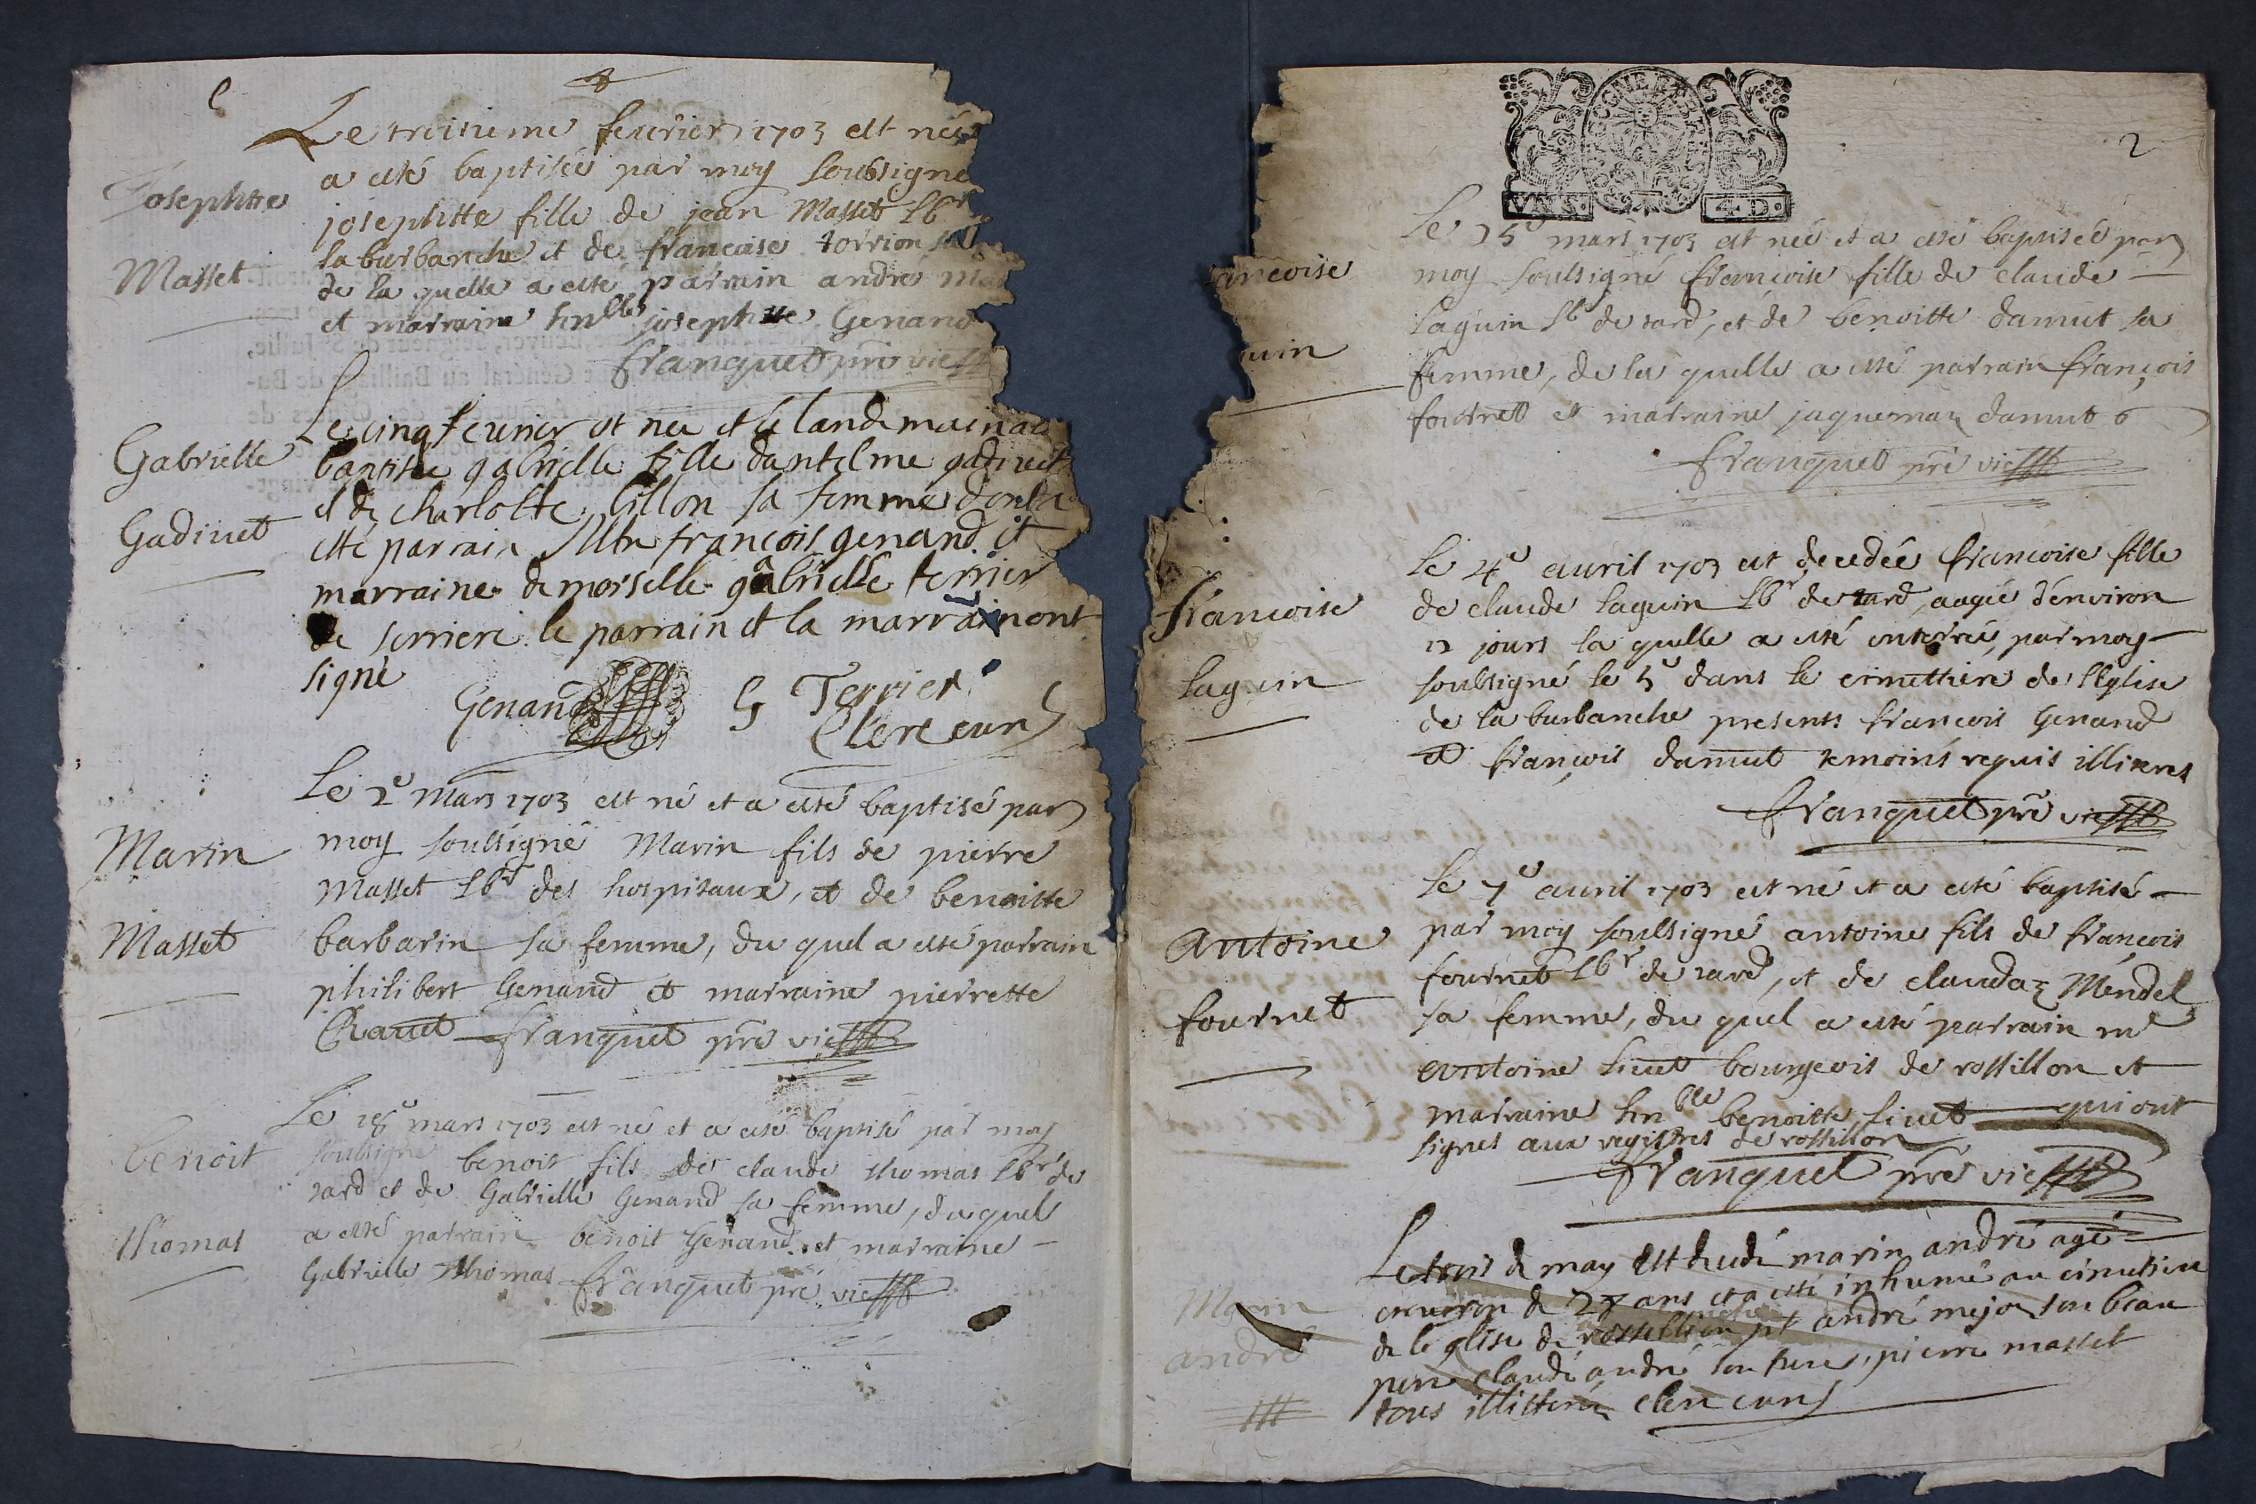 Le troisieme feurier 1703 est née
a esté baptisée par moy soubsigne
josephtte fille de jean Masset Lbr
la burbanche et de francoise torrion sa
de la quelle a esté parrain andré Ma
et marraine hnble josephtte Genand
franquet pre vic
Josephtte
Masset
Le cinq feurier est nee et le landemain a
baptisee gabrielle fille dantelme gadiuet
et de charlotte billon sa femme dont a
esté parrain Mr françois genand et
marraine demoiselle gabrielle terrier
de serriere le parrain et la marraine ont
signé
Genand G Terrier
Clerc curé
Gabrielle
Gadiuet
Le 2e mars 1703 est né et a esté baptisé par
moy soulsigné Marin fils de pierre
Masset Lbr des hospitaux, et de benoitte
barbarin sa femme, du quel a esté parrain
philibert Genand et marraine pierrette
Rauet franquet pre vic
Marin
Masset
Le 18e mars 1703 est né et a esté baptisé par moy
soulsigné benoit fils de claude thomas Lbr de
tard et de Gabrielle Genand sa femme, du quel
a esté parrain benoit Genand et marraine
Gabrielle thomas franquet pre vic
benoit
thomas
GNE ET
VN S. 4 D.
2
Le 25e mars 1703 est née et a esté baptisée par
moy soulsigné francoise fille de claude
laguin Lb de tard, et de benoitte damut sa
femme, de la quelle a esté parrain françois
fournet et marraine jaquemaz damut
franquet pre vic
ancoise
uin
Le 4e auril 1703 est decedée francoise fille
de claude laguin Lbr de tard, aagée d'enuiron
12 jours la quelle a esté enterrée, par moy
soubsigné le 5e dans le cimettiere de l'Eglise
de la burbanche presents francois Genand
et françois damut temoins requis illiteres
franquet pre vic
francoise
laguin
Le 7e auril 1703 est né et a esté baptisé
par moy soulsigné antoine fils de francois
fournet Lbr de tard, et de claudaz Mendel
sa femme, du quel a esté parrain mr
antoine liuet bourgeois de rossillon et
marraine hnble benoitte liuet qui ont
signes aux registres de rossillon
franquet pre vic
antoine
fournet
Le trois de may est decedé marin andré agé
enuiron de 27 ans et a esté inhumé au cimetiere
de leglise de rossillion pt andré mejoz son beau
pere claude andré son frere, pierre masset
tous illitteré clerc curé
Marin
andré